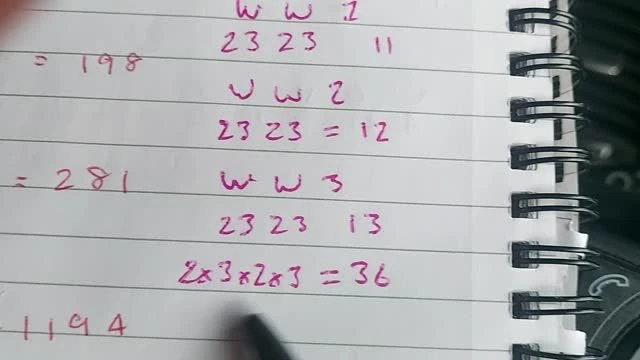 W W 1
23 23 11
= 198
W W 2
23 23 = 12
= 281
W W 3
23 23 13
2×3×2×3 = 36
1194